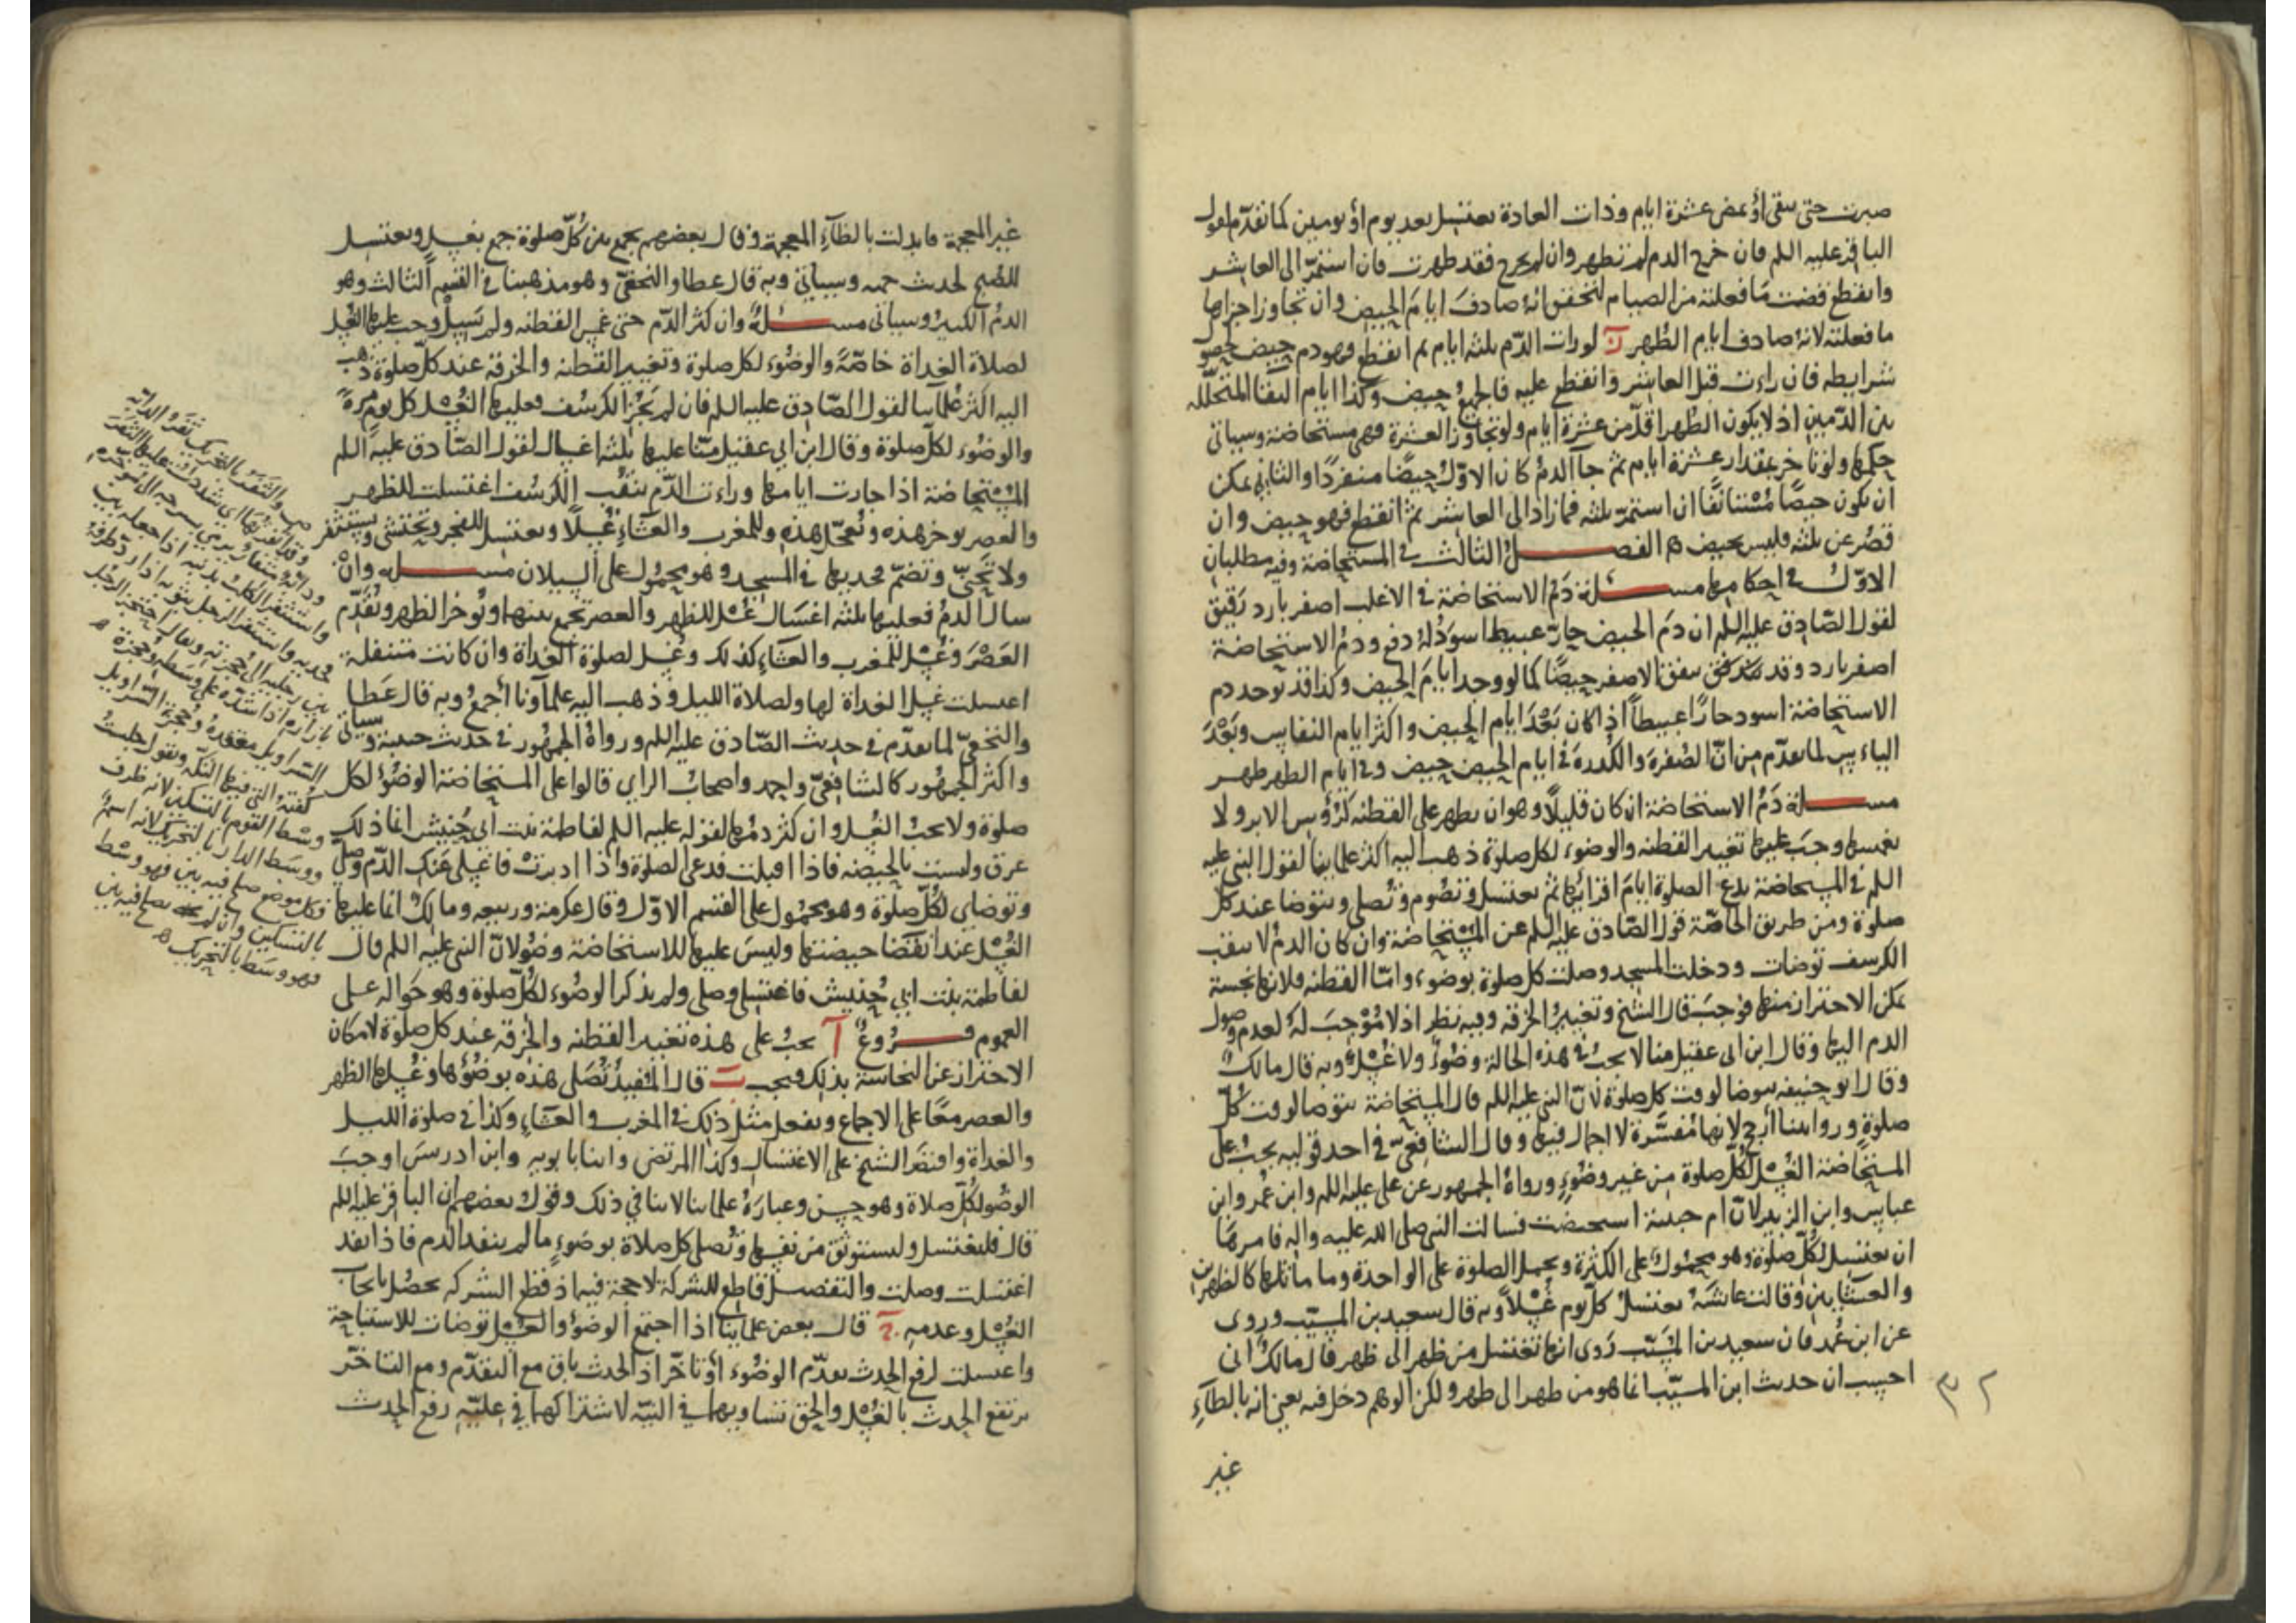 صبرت حتى تنقى او تمضى عشرة ايام وذات العادة تغتسل بعد يوم أو يومين كما تقدّم لقول
الباقر عليه اللم فان خرج الدم لم تطهر وان لم يخرج فقد طهرت فان استمرّ الى العاشر
وانقطع قضت ما فعلته من الصيام لتحقق انه صادف ايامَ الحيض وان تجاوز اجزاها
ما فعلته لانهُ صادف ايام الطُهر لو رات الدّم ثلثه ايام ثم انقطع فهو دم حيض لحصول
شرايطه فان راءت قبل العاشر وانقطع عليه فالجميعُ حيض وكذا ايام النقا المتخلّله
بين الدّمين اذ لا يكون الطُهر اقلّ من عشرة ايام ولو تجاوز العشرة فهى مستحاضة وسياتى
حكمها ولو تاخر بمقدار عشرة ايام ثم جآ الدمُ كان الاوّلُ حيضًا منفردًا والثانى يمكن
ان يكون حيضًا مُسْتانفًا ان استمرّ ثلثه فما زاد الى العاشر ثم انقطع فهو حيض وان
قصُر عن ثلثه فليس بحيض ه الفصل الثالث فى المستحاضة وفيه مطلبان
الاوّل فى احكامها مسئلة دَمُ الاستحاضة فى الاغلب اصفر بارد رَقيق
لقول الصّادق عليه اللم ان دمَ الحيض حارّ عبيط اسوَدُ لهُ دفع ودمُ الاستحاضة
اصفر بارد وقد يتفق الاصفر حيضًا كما لو وجد ايامَ الحيض وكذا قد يوجد دم
الاستحاضة اسود حارًا عبيطاً اذا كان بَعْدَ ايام الحيض واكثر ايام النفاس وبَعْدَ
الياس لما تقدّم من انّ الصُفرَة والكُدرةَ فى ايام الحيض حيض وفى ايام الطهر طهر
مسئلة دَمُ الاستحاضة ان كان قليلًا وهو ان يظهر على القطنه كرُؤس الابر ولا
يغمسها وجبَ عليها تغيير القطنه والوضوء لكل صلوة ذهب اليه اكثر علماينا لقول النبى عليه
اللم فى المستحاضة تدع الصلوة ايامَ اقرائها ثم تغتسل وتصُوم وتُصلى وتتوضا عند كل
صلوة ومن طريق الخاصّة قول الصّادق عليه اللم عن المستحاضة وان كان الدمُ لا يثقب
الكرسف توضات ودخلت المسجد وصلت كل صلوة بوضوء وامّا القطنه فلانها نجسة
يمكن الاحتراز منها فوجبَ قال الشيخ وتغييرُ الخرقه وفيه نظر اذ لا مُوْجبَ لهُ لعدم وصول
الدم اليها وقال ابن ابى عقيل منا لا يجبُ فى هذه الحالة وضُوءٌ ولا غُسْلٌ وبه قال مالك
وقال ابو حنيفه تتوضا لوقت كل صلوة لانّ النبى عليه اللم قال المستحاضة تتوضا لوقت كُلّ
صلوةٍ ورواياتنا أرجح لانها مُفسَّرة لا اجمال فيها وقال الشافعىّ فى احد قوليه يجبُ على
المستحاضة الغُسْلُ لكُلّ صلوة من غير وضُوءٍ ورواهُ الجمهور عن على عليه اللم وابن عُمر وابن
عباس وابن الزبير لانّ ام حبيبة استحيضت فسالت النبى صلى الله عليه واله فامرهَا
ان تغتسل لكُلّ صلوة وهو محمُولٌ على الكثرة ويحمل الصلوة على الواحدة وما ماثلها كالظهرين
والعشاءين وقالت عائشَهُ تغتسلُ كلّ يوم غُسْلًا وبه قال سعيد بن المسيّب وروى
عن ابن عُمر فان سعيد بن المسَيّب رَوى انها تغتسل من ظهر الى ظهر قال مالكٌ انى
احسب ان حديث ابن المسيّب انما هو من طهر الى طهر ولكن الوهم دخل فيه يعنى انه بالطآءِ
غير
٣٢
غير المعجمة فابدلت بالظآءِ المعجمة وقال بعضهم يجمع بين كُلّ صلوة جمع بغسلٍ وتغتسل
للصُبح لحديث حمنه وسياتى وبه قال عطا والنخعىّ وهو مذهبنا فى القسم الثالث وهو
الدمُ الكثيرُ وسياتى مسئلة وان كثر الدّم حتى غمس القطنه ولم يَسِلْ وجب عليها الغُسل
لصلاة الغداة خاصّةً والوضُوء لكل صلوة وتغيير القطنه والخرقه عند كلّ صلوة ذهب
اليه اكثر عُلماينا لقول الصّادق عليه اللم فان لم يَجُز الكرسُف فعليها الغُسْل كل يوم مرةً
والوضُوء لكلّ صلوة وقال ابن ابى عقيل منّا عليها ثلثه اغسال لقول الصّادق عليه اللم
المسْتحاضة اذا جازت ايامها وراءت الدّم يثقُب الكرسُف اغتسلت للظهر
والعصر توخر هذه وتُعجّل هذه وللمغرب والعشَاءِ غُسلًا وتغتسل للفجر وتحتشى وتستثفر
ولا تَحنِّى وتضمّ فخذيها فى المسجد وهو محمُول على السيلان مسئلة وانْ
سال الدمُ فعليها ثلثه اغسَال غُسْل للظهر والعصر تجمع بينهما وتُوخر الظهر وتُقدّم
العَصْرَ وغُسْل للمغرب والعشَاءِ كذلك وغُسل لصلوة الغداة وان كانت متنفلة
اغتسلت غسل الغداة لها ولصلاة الليل وذهب اليه علمآونا أجمعُ وبه قال عَطا
والنخعىّ لما تقدّم فى حديث الصّادق عليه اللم ورواهُ الجمهُور فى حديث حمنه وسياتى
واكثر الجمهُور كالشافعىّ واحمد واصحاب الراى قالوا على المستحاضة الوضُوُ لكل
صلوة ولا يجبُ الغُسل وان كثر دمُها لقوله عليه اللم لفاطمة بنت ابى حُبَيش انما ذلك
عرق وليست بالحيضه فاذا اقبلت فدعى الصلوة واذا ادبرتْ فاغسلى عنك الدّم وصلّى
وتوضاى لكُلّ صلوة وهو محمُول على القسم الاوّل وقال عكرمة وربيعه ومالكٌ انما عليها
الغُسْل عند انقضَا حيضتها وليسَ عليها للاستحاضة وضُو لانّ النبى عليه اللم قال
لفاطمة بنت ابى حُبيش فاغتسلى وصلى ولم يذكر الوضُوء لكُلّ صلوة وهو حوالة على
العموم فرُوعٌ آ يجبُ على هذه تغيير القطنه والخرقه عند كل صلوة لامكان
الاحتراز عن النجاسة بذلك فيجب ب قال المُفيدُ تُصَلى هذه بوضُؤها وغُسلها الظهر
والعصر معًا على الاجماع وتفعل مثل ذلك فى المغرب والعشَاءِ وكذا فى صلوة الليل
والغداة واقتصَر الشيخ على الاغتسال وكذا المرتضى وابنا بابويه وابن ادريسَ اوجبَ
الوضُو لكُلّ صلاة وهو حسن وعبارَةُ علماينا لا تنافى ذلك وقولُ بعضهم ان الباقر عليه اللم
قال فلتغتسل ولتستوثق من نفسها وتُصلى كل صلاة بوضوءٍ ما لم ينفذ الدم فاذا نفذ
اغتسلت وصلت والتفصيل قاطع للشركة لا حجة فيه اذ قطع الشركه يحصُل بايجاب
الغُسْل وعدمه ج قال بعض علماينا اذا اجتمع الوضُو والغُسل توضات للاستباحة
واغتسلت لرفع الحدث تقدّم الوضُوء أو تاخّر اذ الحدث باق مع التقدّم ومع التاخّر
يرتفع الحدث بالغُسْل والحق تساويهما فى النيّه لاشتراكهما فى علّيه رفع الحدث
ص والثفَرُ بالتحريك ثفرُ الدابّه
وقد اثفرتُها اى شددت عليها الثفرَ